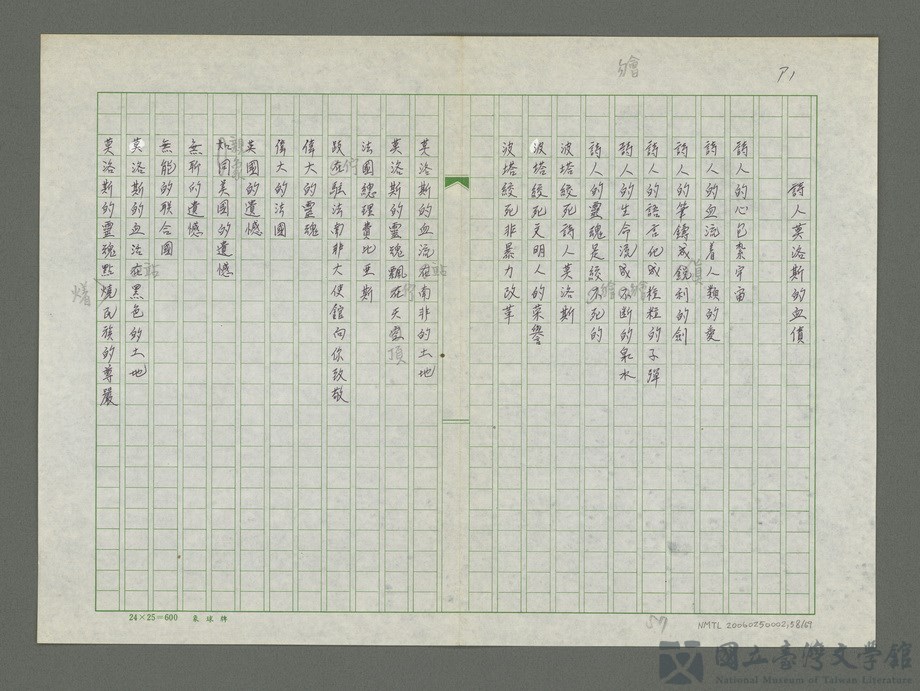 P1
詩人莫洛斯的血債
詩人的心包紮宇宙
詩人的血流着人類的愛
詩人的筆鑄成銳利的劍
詩人的語言化成粒粒的子彈
詩人的生命流成不斷的泉水
詩人的靈魂是絞不死的
波塔絞死詩人莫洛斯
波塔絞死文明人的榮譽
波塔絞死非暴力改革
莫洛斯的血流在南非的土地
莫洛斯的靈魂飄在天堂頂
法國總理費比亞斯
跤在駐法南非大使館向你致敬
偉大的靈魂
偉大的法國
英國的遺憾
如同美國的遺憾
無新的遺憾
無能的聯合國
莫洛斯的血沾在黑色的土地
莫洛斯的靈魂點燒民族的尊嚴
24×25=600
57
NMTL 20060250002;58/69
國立臺灣文學館
National Museum of Taiwan Literature